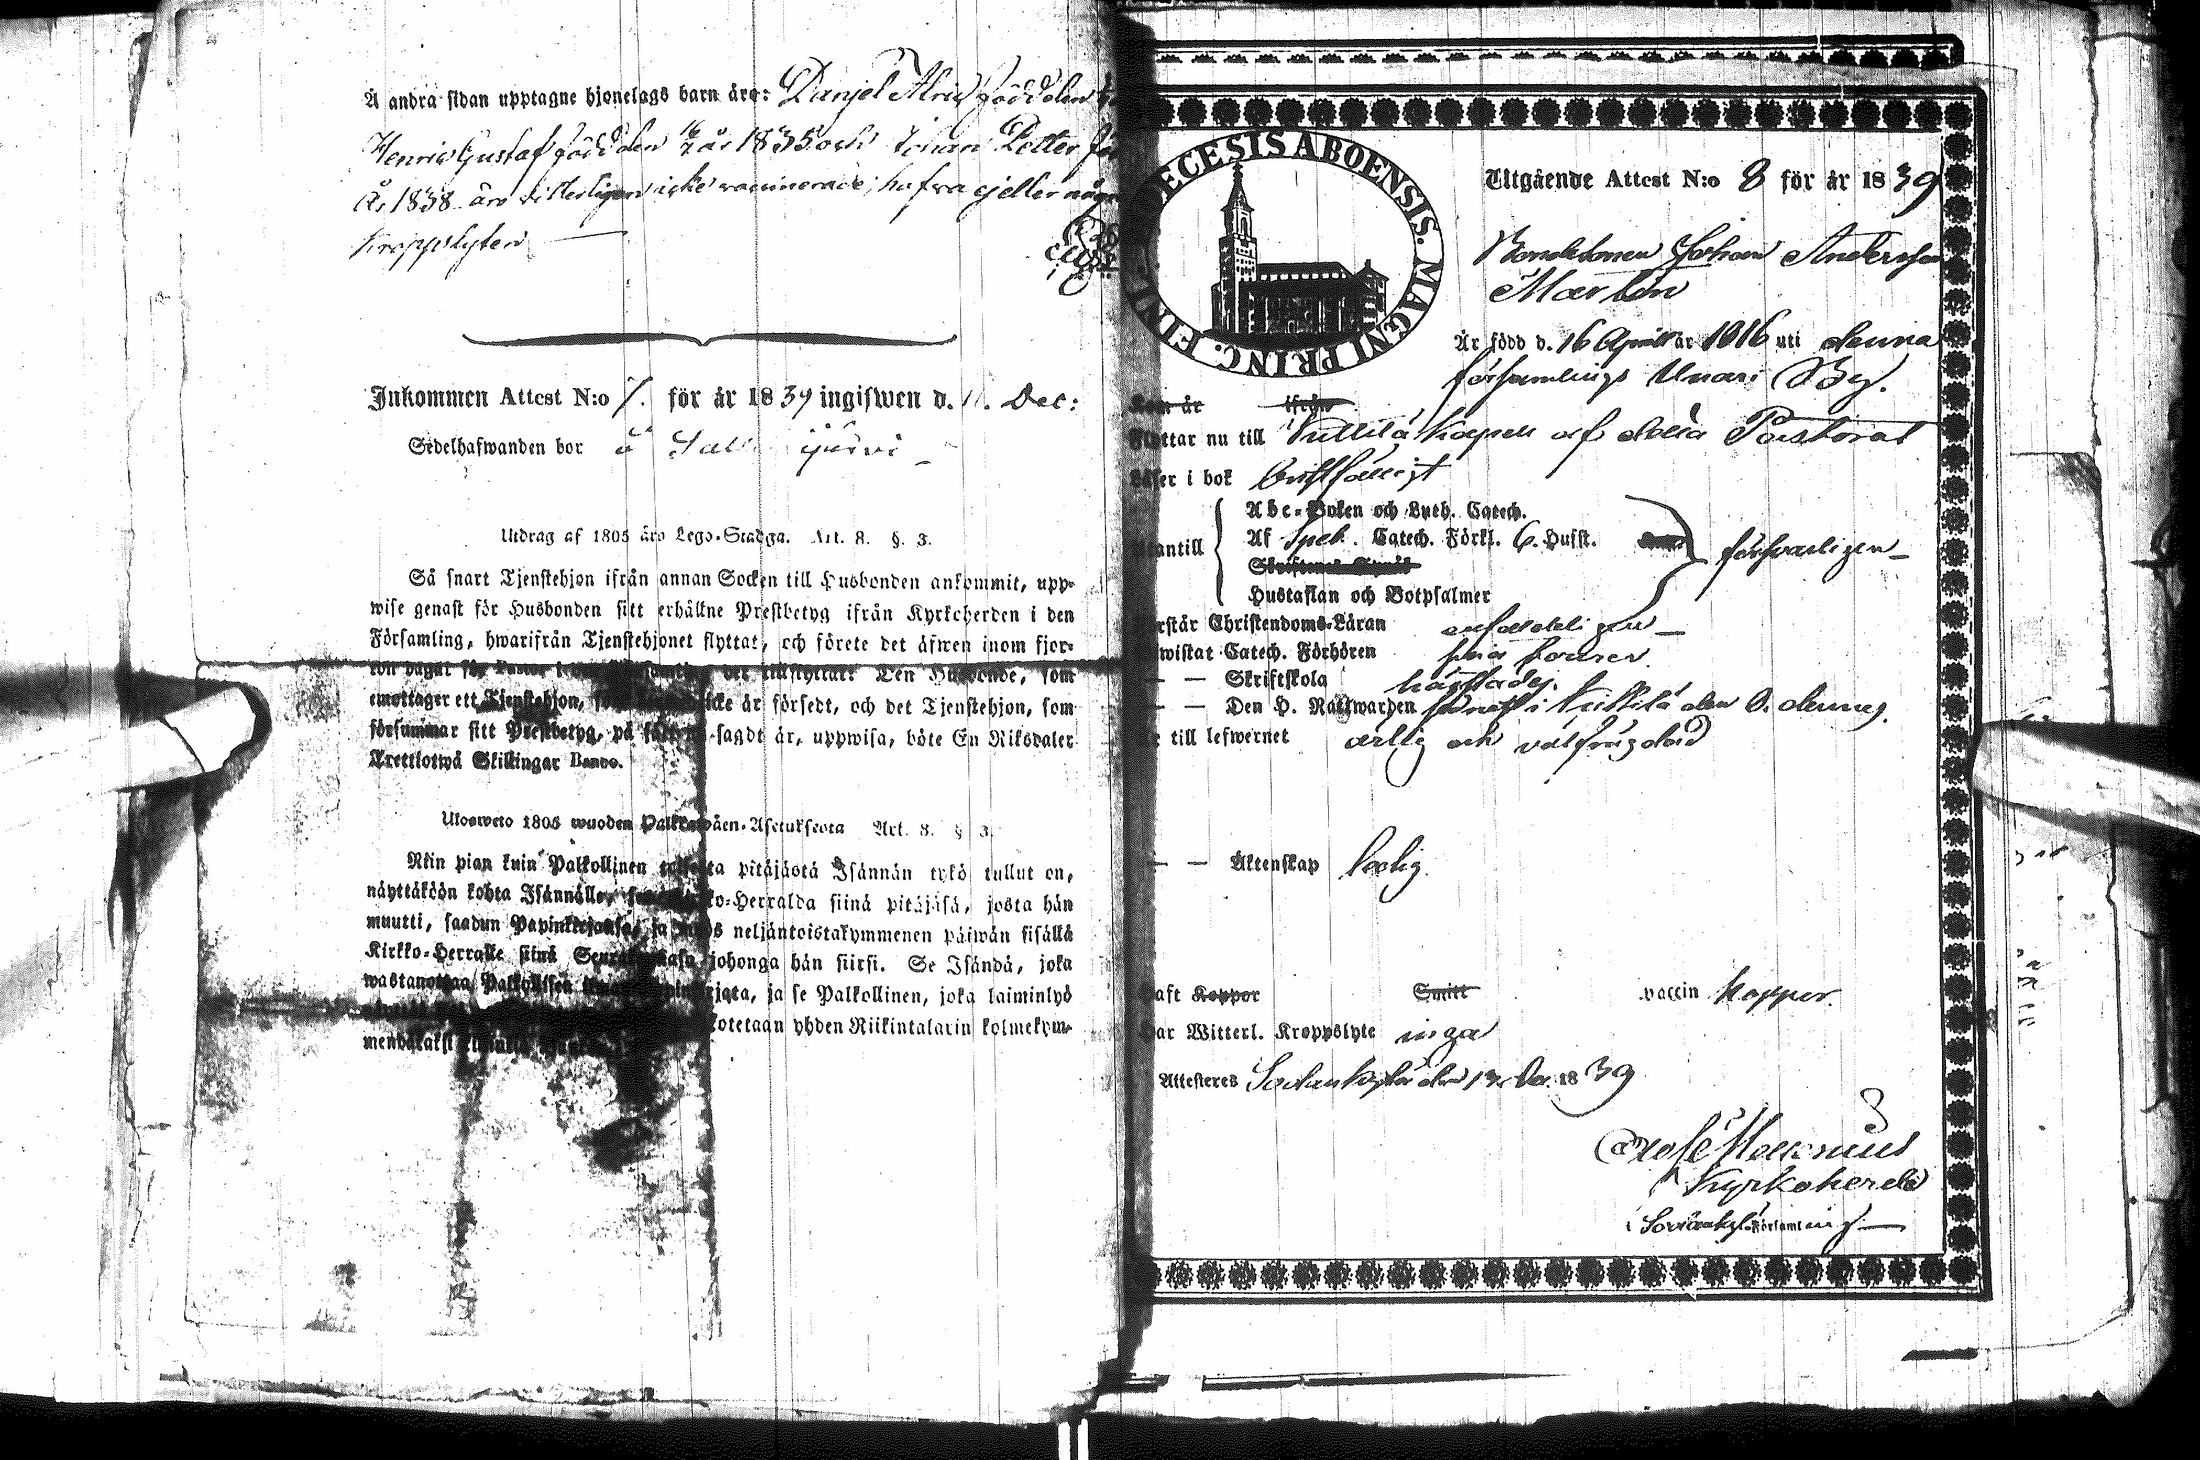 Å andra sidan upptagne hjonelags barn äro: Danjel Alric född den
Henric Gustaf född den 16/7 år 1835 och Johan Petter
År 1838 äro vitterligen icke vaccinerade; hafva ej eller någ
Kroppslyten
Inkommen Attest N:o 7. för år 1839 ingifwen d. 11. Dec:
Sedelhafwanden bor å
Utdrag af 1805 års Lego-Stadga. Art. 8. §. 3.
Så snart Tjenstehjon ifrån annan Socken till Husbonden ankommit, upp-
wise genast för Husbonden sitt erhållne Prestbetyg ifrån Kyrkoherden i den
Församling, hwarifrån Tjenstehjonet flyttat, och förete det äfwen inom fjor-
ton dagar för det tillflyttat: Den Husbonde, som
emottager ett Tjenstehjon, icke är försedt, och det Tjenstehjon, som
försummar sitt Prestbetyg, på sagdt är, uppwisa, böte En Riksdaler
Trettiotwå Skillingar Banco.
Ulosweto 1805 wuoden Palkkawäen-Asetuksesta Art. 8. § 3.
Niin pian kuin Palkollinen toisesta pitäjästä Isännän tykö tullut on,
näyttäköön kohta Isännälle, Kirkko-Herralda siinä pitäjäsä, josta hän
muutti, saadun Papinkirjansa, ja myös neljäntoistakymmenen päiwän sisällä
Kirkko-Herralle siinä Seurakunnasa johonga hän siirsi. Se Isändä, joka
wastanottaa Palkollisen ja se Palkollinen, joka laiminlyö
sakotetaan yhden Riikintalarin kolmekym-
mendäkaksi
ECESIS ABOENSIS. MAGNI PRINC. FIN
Utgående Attest N:o 8 för år 1839
Bondesonen Johan Andersson
Martin
Är född d. 16 April år 1816 uti denna
församlings Unari By.
Kom år ifrån
Flyttar nu till Kittilä Kapell af detta Pastorat
Läser i bok bristfälligt
Utantill
Abc-Boken och Luth. Catech.
Af Spek. Catech. Förkl. 6. Hufst. försvarligen
Hustaflan och Botpsalmer
rstår Christendoms-Läran enfaldeligen
wistat Catech. Förhören
— — Skriftskola
— — Den H. Nattwarden i Kittilä den 8. dennes.
till lefwernet ärlig och välfrägdad
— — Äktenskap ledig.
aft Koppor Smitt vaccin koppor.
ar Witterl. Kroppslyte inga
Attesteres Sodankylä den 13. Dec. 1839
Kyrkoherde
i Sodankylä Församling